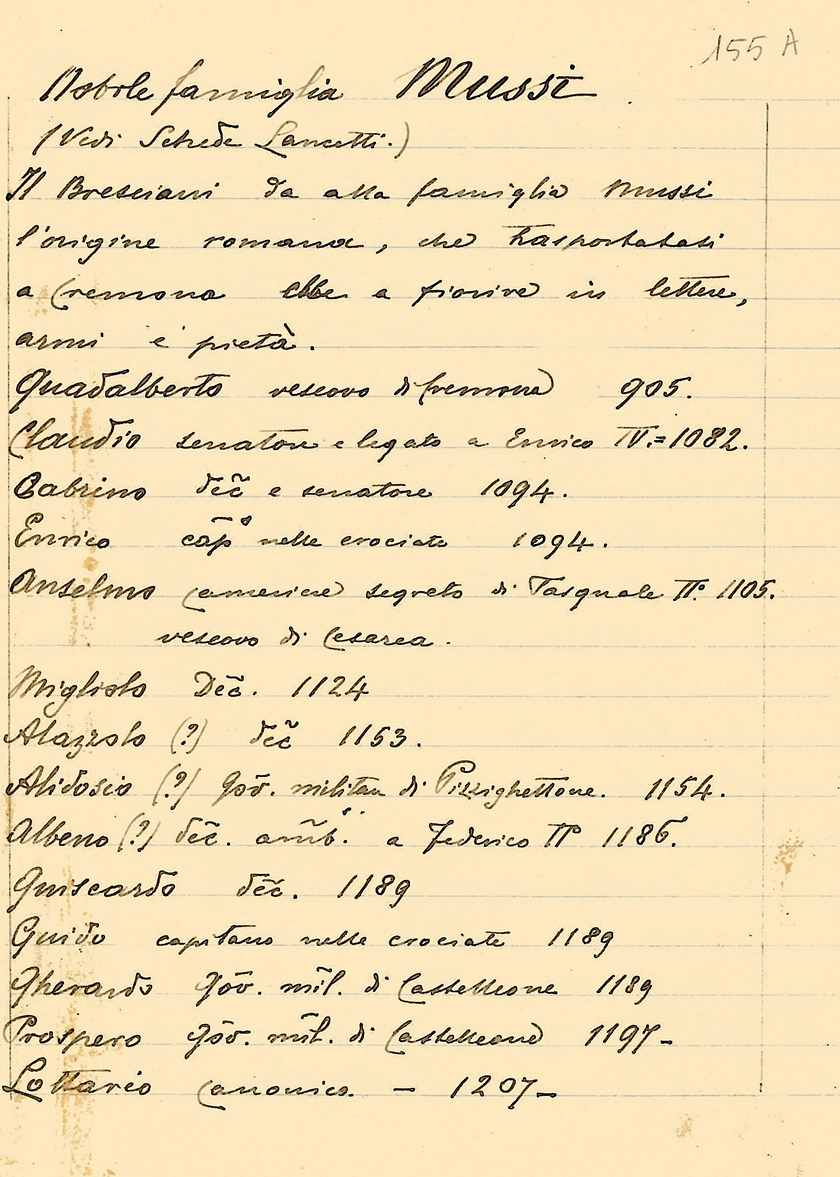 155 A
Nobile famiglia Mussi
(Vedi Schede Lancetti.)
Il Bresciani da alla famiglia Mussi
l'origine romana, che trasportatasi
a Cremona ebbe a fiorire in lettere,
armi e pietà.
Gualdalberto vescovo di Cremona 905.
Claudio senatore e legato a Enrico IV.=1082.
Cabrino dec̃ e senatore 1094.
Enrico cap̃º nelle crociate 1094.
Anselmo cameriere segreto di Pasquale IIº. 1105.
vescovo di Cesarea.
Migliolo Dec̃. 1124
Alazzolo (?) dec̃ 1153.
Alidosio (?) Goṽ. militar di Pizzighettone. 1154.
Albeno (?) dec̃. amb̃. a Federico IIº 1186.
Guiscardo dec̃. 1189
Guido capitano nelle crociate 1189
Gherardo Goṽ. mil̃. di Castelleone 1189
Prospero goṽ. mil̃. di Castelleone 1197-
Lottario canonico. - 1207-